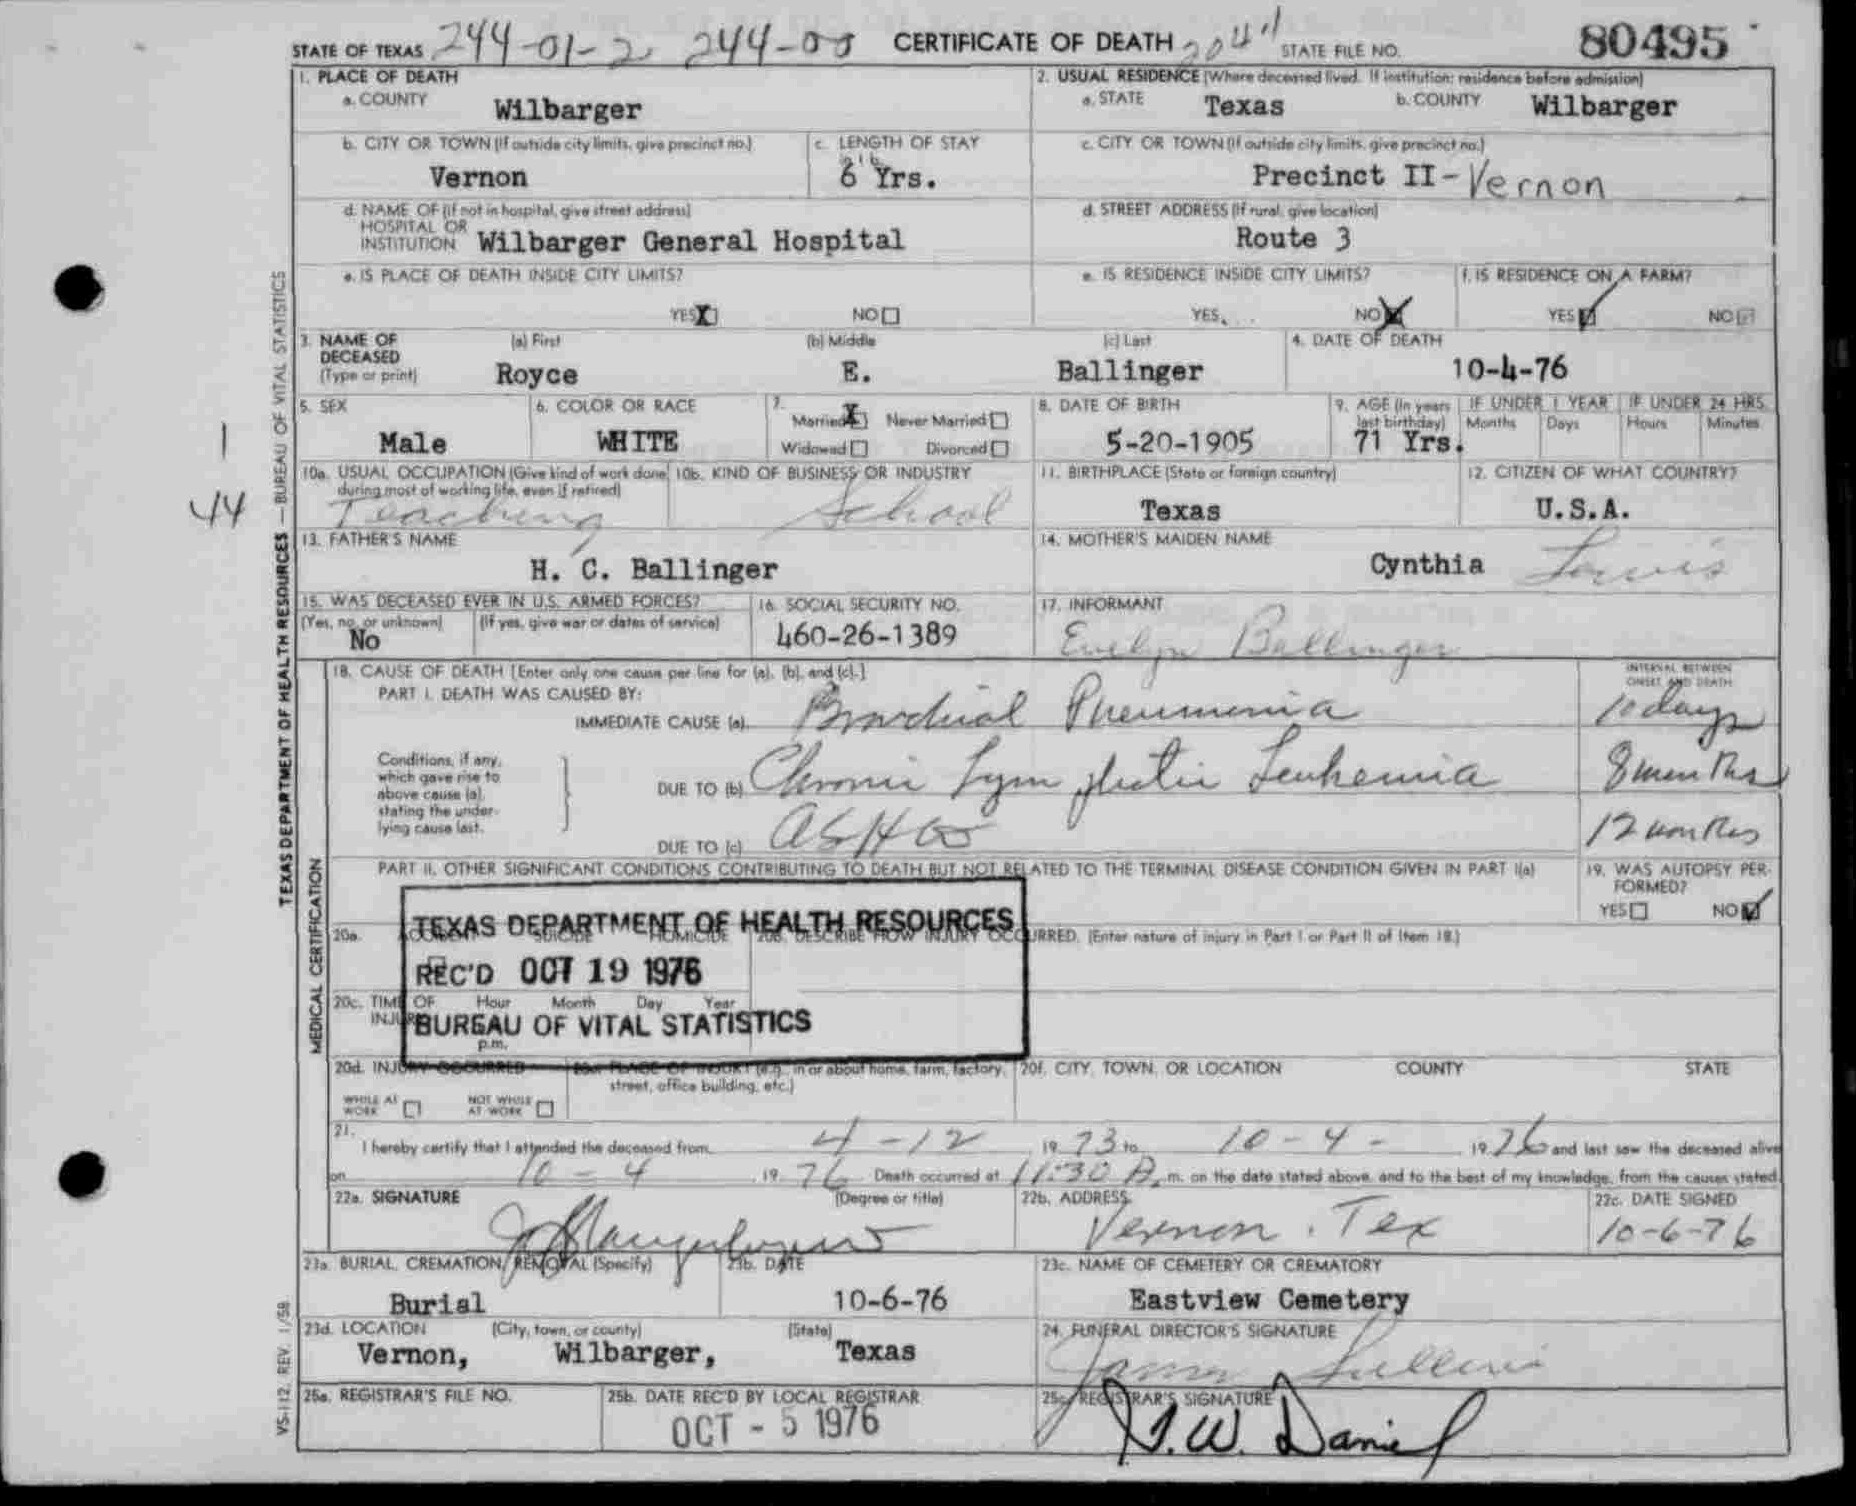 STATE OF TEXAS 244-01-2 244-00 CERTIFICATE OF DEATH 2041 STATE FILE NO. 80495
1. PLACE OF DEATH
a. COUNTY Wilbarger
2. USUAL RESIDENCE (Where deceased lived. If institution: residence before admission)
a. STATE Texas b. COUNTY Wilbarger
b. CITY OR TOWN (If outside city limits, give precinct no.) Vernon
c. LENGTH OF STAY 6 Yrs.
c. CITY OR TOWN (If outside city limits, give precinct no.)
Precinct II - Vernon
d. NAME OF (If not in hospital, give street address)
HOSPITAL OR
INSTITUTION Wilbarger General Hospital
d. STREET ADDRESS (If rural, give location)
Route 3
e. IS PLACE OF DEATH INSIDE CITY LIMITS?
YES X NO
e. IS RESIDENCE INSIDE CITY LIMITS?
YES NO X
f. IS RESIDENCE ON A FARM?
YES NO
3. NAME OF DECEASED (Type or print)
(a) First Royce
(b) Middle E.
(c) Last Ballinger
4. DATE OF DEATH
10-4-76
5. SEX
Male
6. COLOR OR RACE
WHITE
7. Married X Never Married
Widowed Divorced
8. DATE OF BIRTH
5-20-1905
9. AGE (In years last birthday)
71 Yrs.
IF UNDER 1 YEAR Months Days
IF UNDER 24 HRS. Hours Minutes
1
44
10a. USUAL OCCUPATION (Give kind of work done during most of working life, even if retired)
Teaching
10b. KIND OF BUSINESS OR INDUSTRY
School
11. BIRTHPLACE (State or foreign country)
Texas
12. CITIZEN OF WHAT COUNTRY?
U.S.A.
13. FATHER'S NAME
H. C. Ballinger
14. MOTHER'S MAIDEN NAME
Cynthia
15. WAS DECEASED EVER IN U.S. ARMED FORCES?
(Yes, no, or unknown) (If yes, give war or dates of service)
No
16. SOCIAL SECURITY NO.
460-26-1389
17. INFORMANT
Evelyn Ballinger
18. CAUSE OF DEATH [Enter only one cause per line for (a), (b), and (c).]
INTERVAL BETWEEN ONSET AND DEATH
PART I. DEATH WAS CAUSED BY:
IMMEDIATE CAUSE (a) Bronchial Pneumonia 10 days
Conditions, if any, which gave rise to above cause (a), stating the underlying cause last.
DUE TO (b) Chronic Lymphatic Leukemia 8 months
DUE TO (c) ASHD 12 months
PART II. OTHER SIGNIFICANT CONDITIONS CONTRIBUTING TO DEATH BUT NOT RELATED TO THE TERMINAL DISEASE CONDITION GIVEN IN PART I(a)
19. WAS AUTOPSY PERFORMED?
YES NO
TEXAS DEPARTMENT OF HEALTH RESOURCES
REC'D OCT 19 1976
BUREAU OF VITAL STATISTICS
20a. ACCIDENT SUICIDE HOMICIDE
20b. DESCRIBE HOW INJURY OCCURRED. (Enter nature of injury in Part I or Part II of Item 18.)
20c. TIME OF INJURY Hour Month Day Year
p.m.
20d. INJURY OCCURRED
WHILE AT WORK NOT WHILE AT WORK
20e. PLACE OF INJURY (e.g., in or about home, farm, factory, street, office building, etc.)
20f. CITY, TOWN, OR LOCATION COUNTY STATE
21.
I hereby certify that I attended the deceased from 4-12 1973 to 10-4- 1976 and last saw the deceased alive
on 10-4 1976. Death occurred at 11:30 A.m. on the date stated above, and to the best of my knowledge, from the causes stated.
22a. SIGNATURE (Degree or title)
22b. ADDRESS
Vernon, Tex
22c. DATE SIGNED
10-6-76
23a. BURIAL, CREMATION, REMOVAL (Specify)
Burial
23b. DATE
10-6-76
23c. NAME OF CEMETERY OR CREMATORY
Eastview Cemetery
23d. LOCATION (City, town, or county) (State)
Vernon, Wilbarger, Texas
24. FUNERAL DIRECTOR'S SIGNATURE
25a. REGISTRAR'S FILE NO.
25b. DATE REC'D BY LOCAL REGISTRAR
OCT - 5 1976
25c. REGISTRAR'S SIGNATURE
J. W. Daniel
TEXAS DEPARTMENT OF HEALTH RESOURCES — BUREAU OF VITAL STATISTICS
MEDICAL CERTIFICATION
VS-112, REV. 1/58